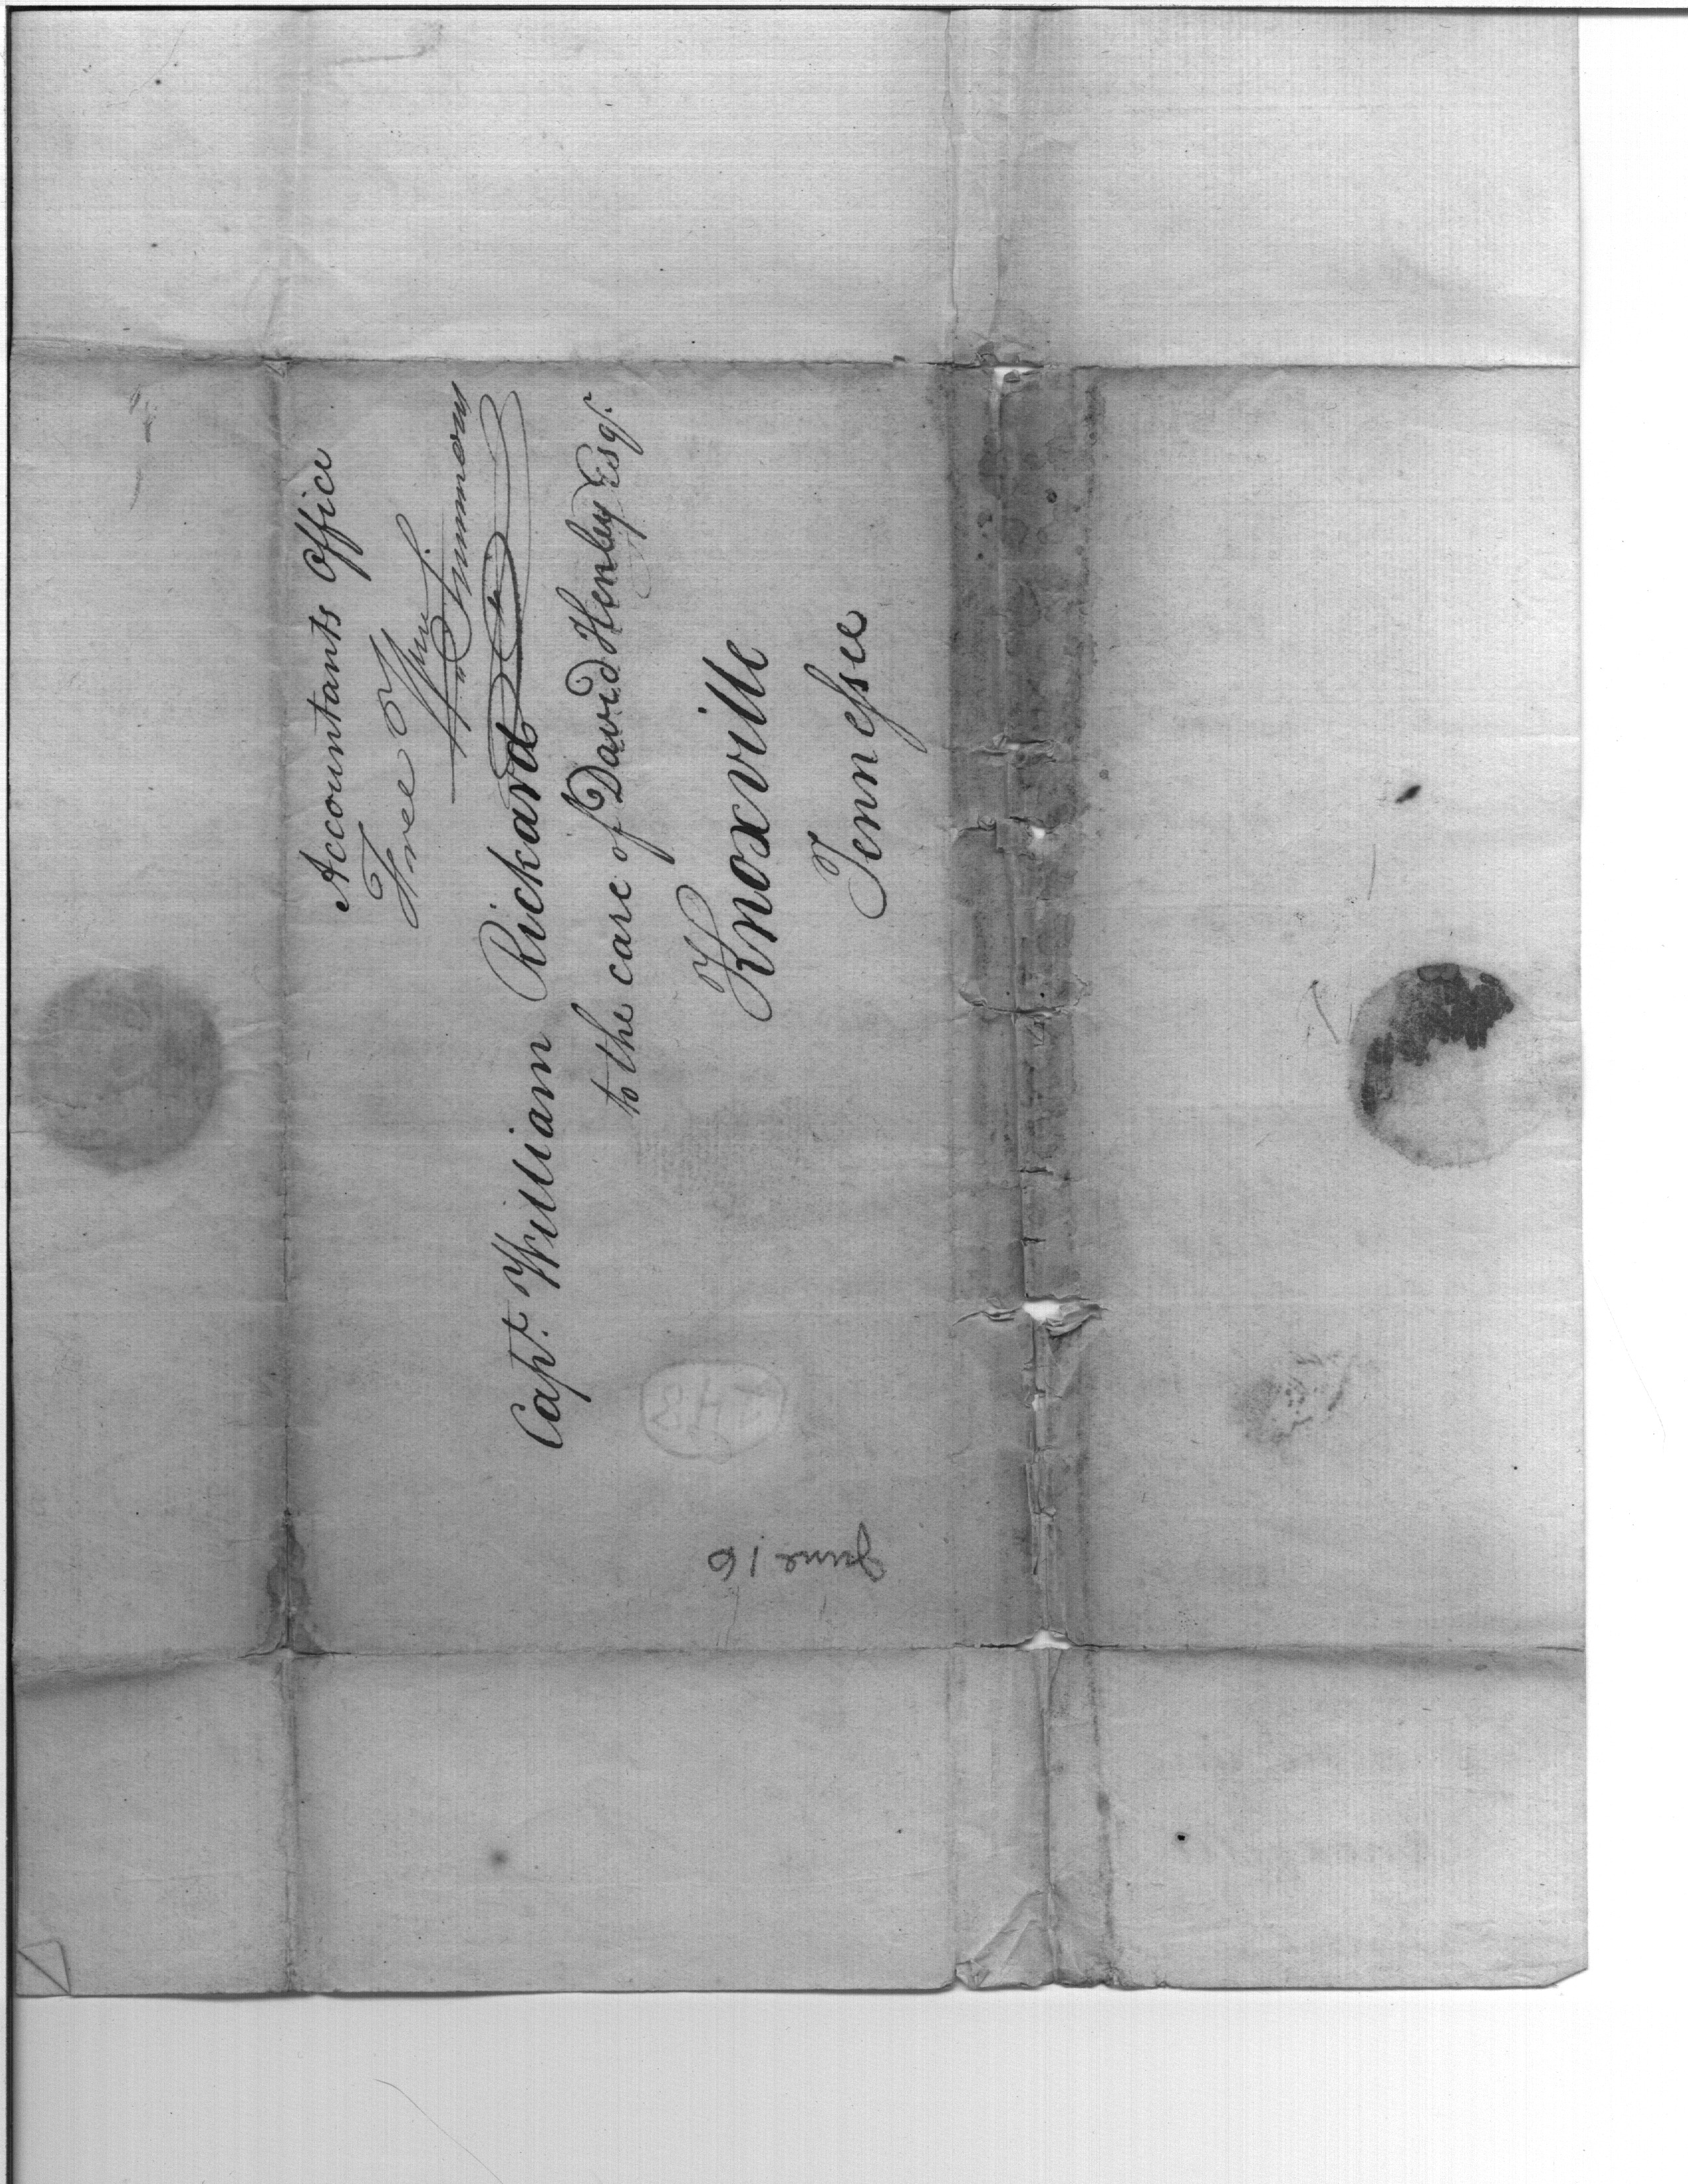 Accountants Office
Free
Wm Simmons
Capt. William Rickard
to the care of David Henley Esqr.
Knoxville
Tennessee
June 16